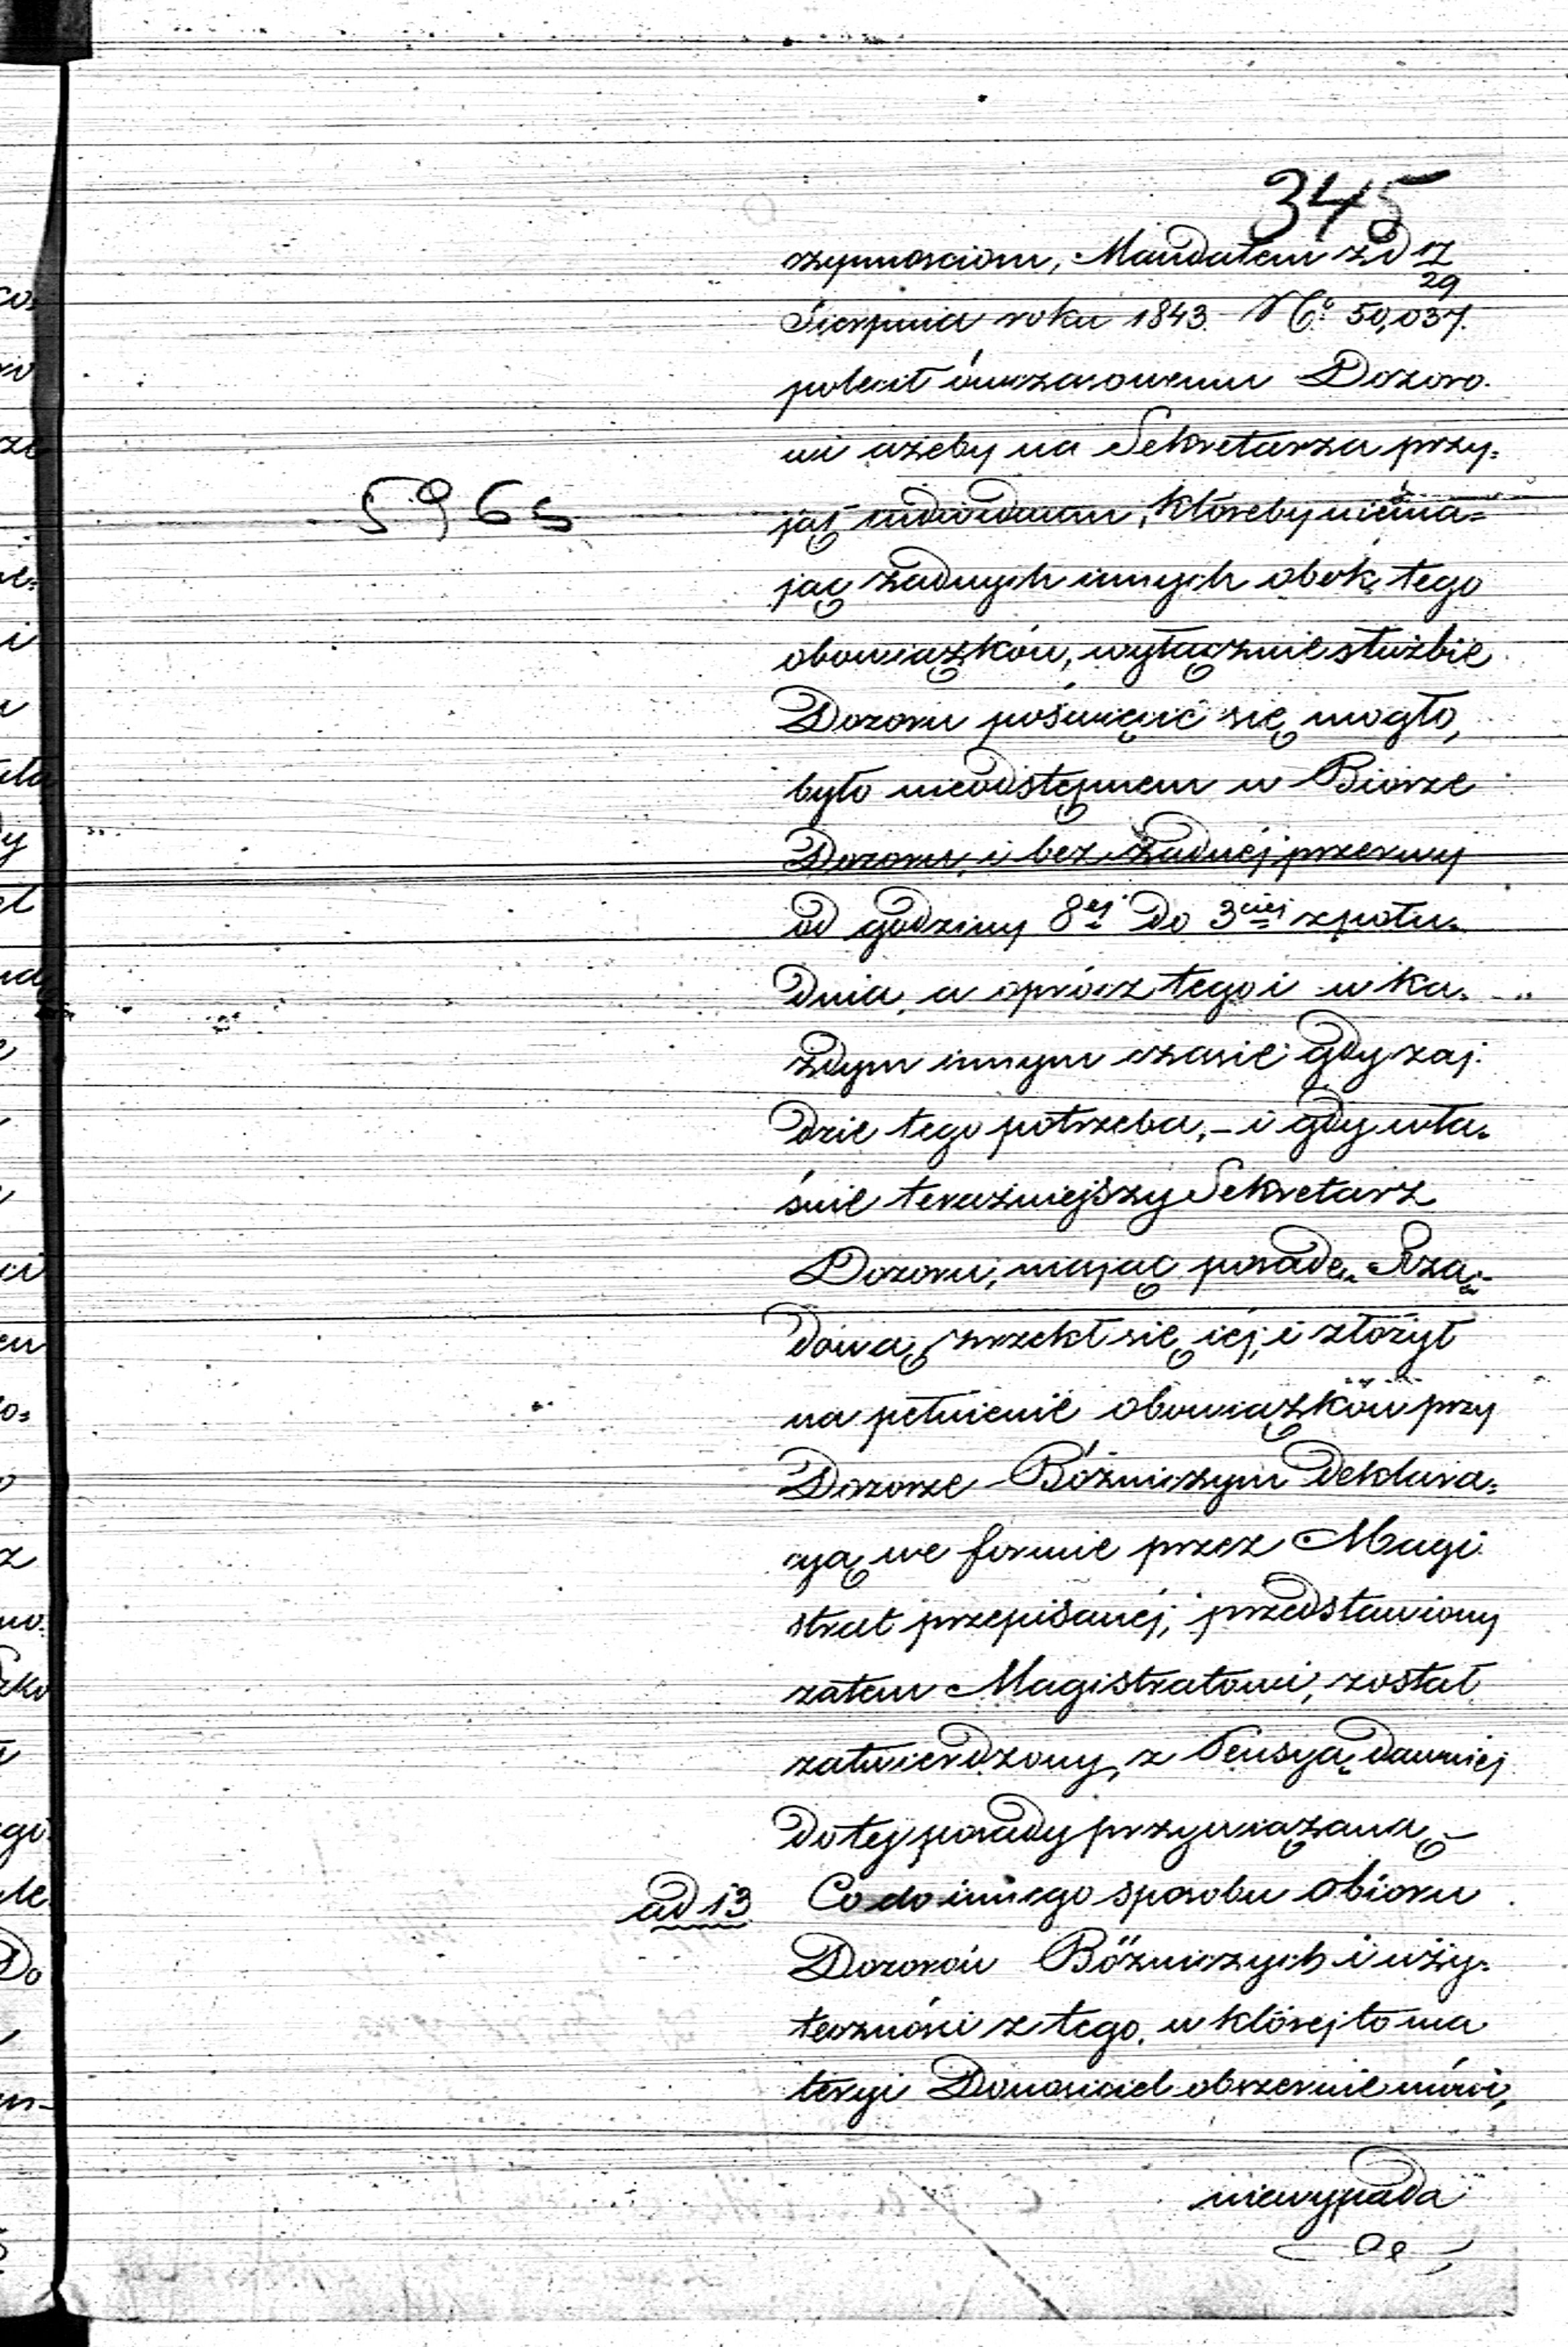 345
czynnosciom, Mandatem z d 17/29
Sierpnia roku 1843. No 50,037.
polecił ówczasowemu Dozoro-
wi ażeby na Sekretarza przy-
5965
jąć indiwiduum, któreby niema-
jąc żadnych innych obok tego
obowiązków, wyłącznie służbie
Dozoru poświęcić się mogło,
było nieodstępnem w Biórze
Dozoru, i bez żadnéj przerwy
od godziny 8ej do 3ciej z połu-
dnia, a oprócz tego i w ka-
żdym innym czasie gdy zaj-
dzie tego potrzeba, - i gdy wła-
śnie teraźniejszy Sekretarz
Dozoru, mając posadę Rzą-
dową, zrzekł się iéj, i złożył
na pełnienie obowiązków przy
Dozorze Bóżniczym Deklara-
cyą we formie przez Magi-
strat przepisanéj, przedstawiony
zatem Magistratowi, został
zatwierdzony, z Pensyą dawniej
do tej posady przywiązaną -
ad 13 Co do innego sposobu obioru
Dozorów Bóżniczych i uży-
teczności z tego, w któréj to ma
teryi Donosiciel obszernie mówi,
niewypada